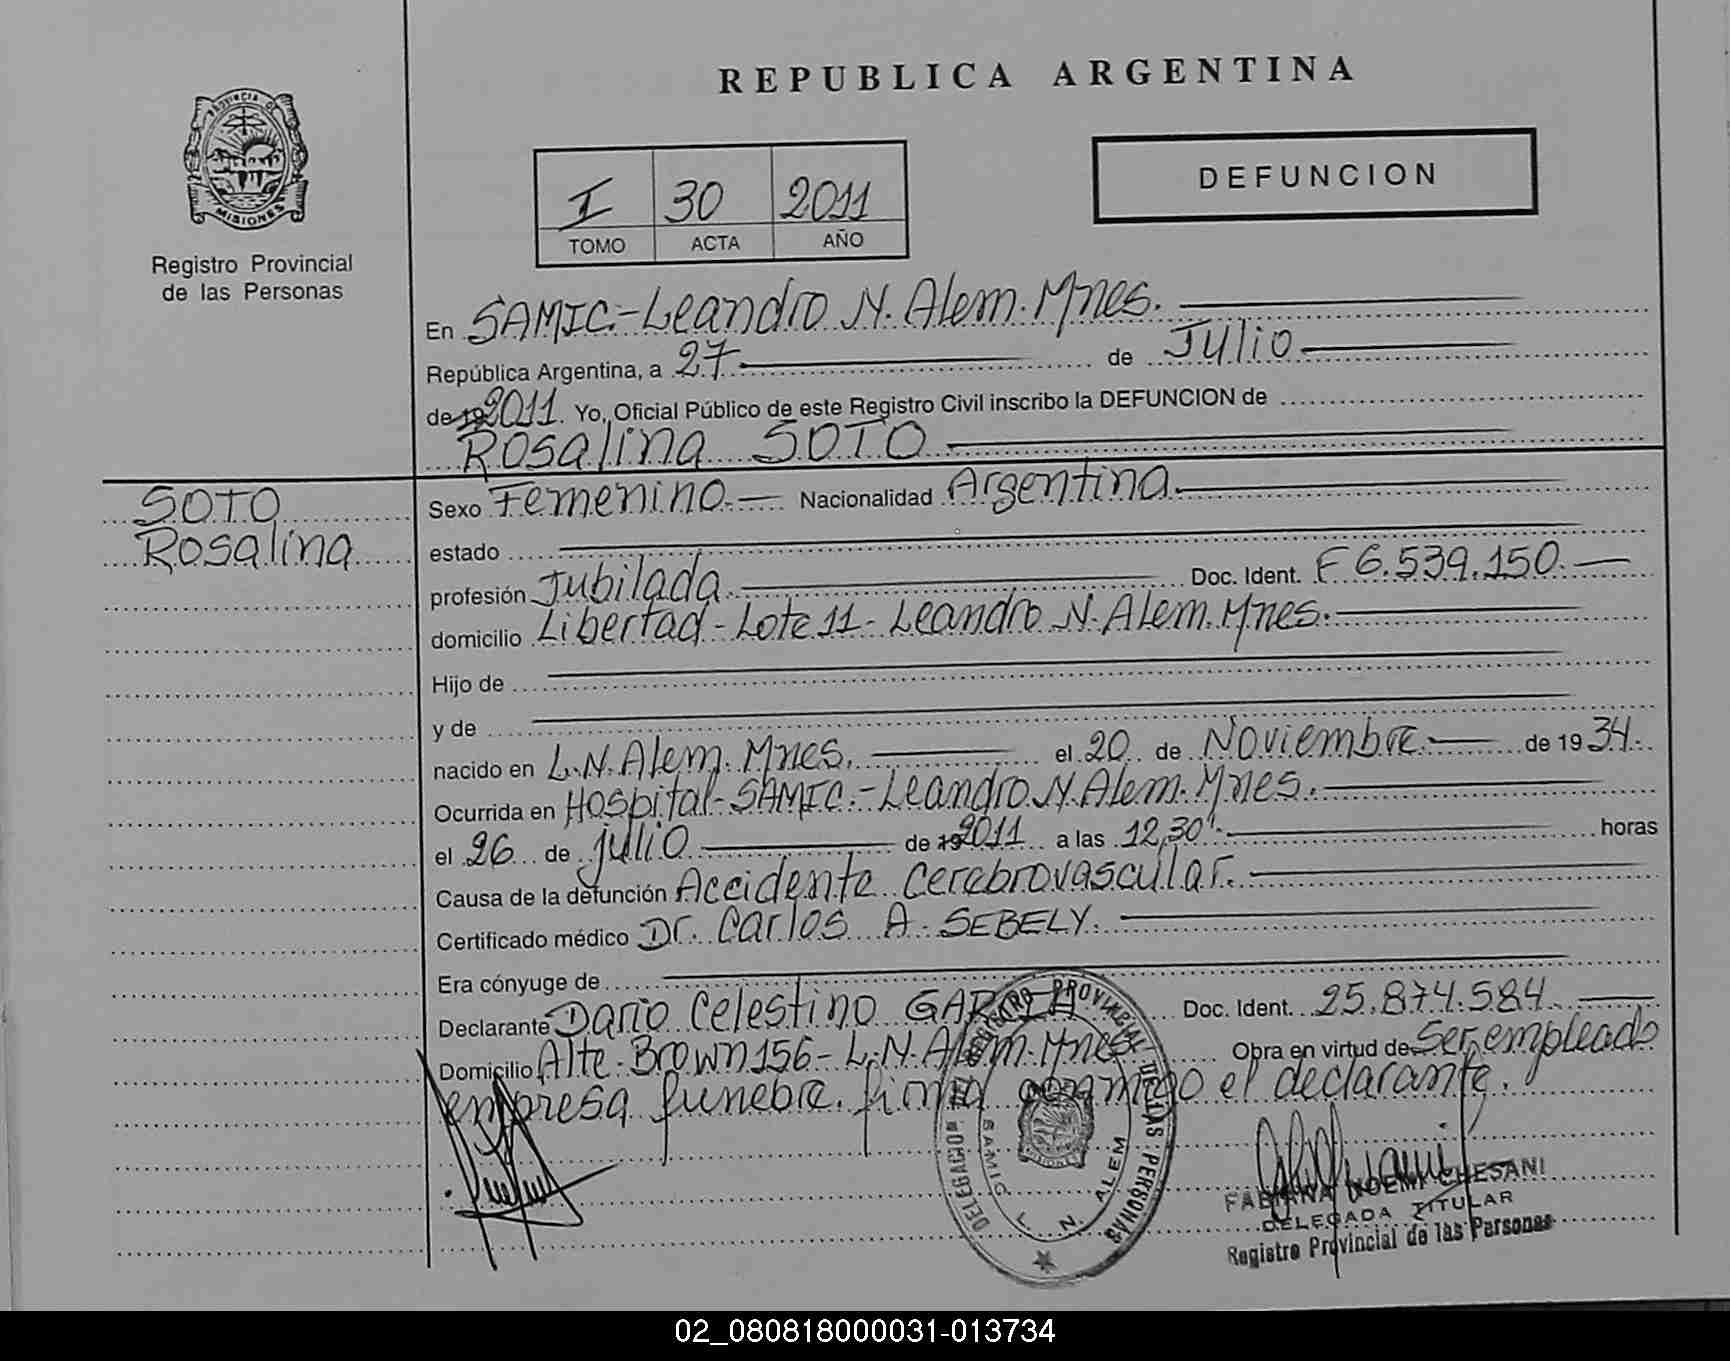 REPUBLICA ARGENTINA
PROVINCIA DE
MISIONES
Registro Provincial
de las Personas
I 30 2011
TOMO ACTA AÑO
DEFUNCION
En SAMIC.-Leandro N. Alem. Mnes.
República Argentina, a 27 de Julio
de 19 2011. Yo, Oficial Público de este Registro Civil inscribo la DEFUNCION de
Rosalina SOTO
SOTO
Rosalina
Sexo Femenino.- Nacionalidad Argentina.
estado
profesión Jubilada Doc. Ident. F 6.539.150.-
domicilio Libertad - Lote 11 - Leandro N. Alem. Mnes.
Hijo de
y de
nacido en L.N. Alem. Mnes. el 20 de Noviembre de 19 34.
Ocurrida en Hospital-SAMIC.-Leandro N. Alem. Mnes.
el 26 de julio de 19 2011 a las 12,30'. horas
Causa de la defunción Accidente Cerebrovascular.
Certificado médico Dr. Carlos A. SEBELY.
Era cónyuge de
Declarante Dario Celestino GARCIA Doc. Ident. 25.874.584
Domicilio Alte. Brown 156 - L.N. Alem. Mnes Obra en virtud de Ser empleado
empresa funebre. firma conmigo el declarante.
DELEGACION DEL REGISTRO PROVINCIAL DE LAS PERSONAS
SAMIC L. N. ALEM
MISIONES
FABIANA NOEMI CHESANI
DELEGADA TITULAR
Registro Provincial de las Personas
02_080818000031-013734